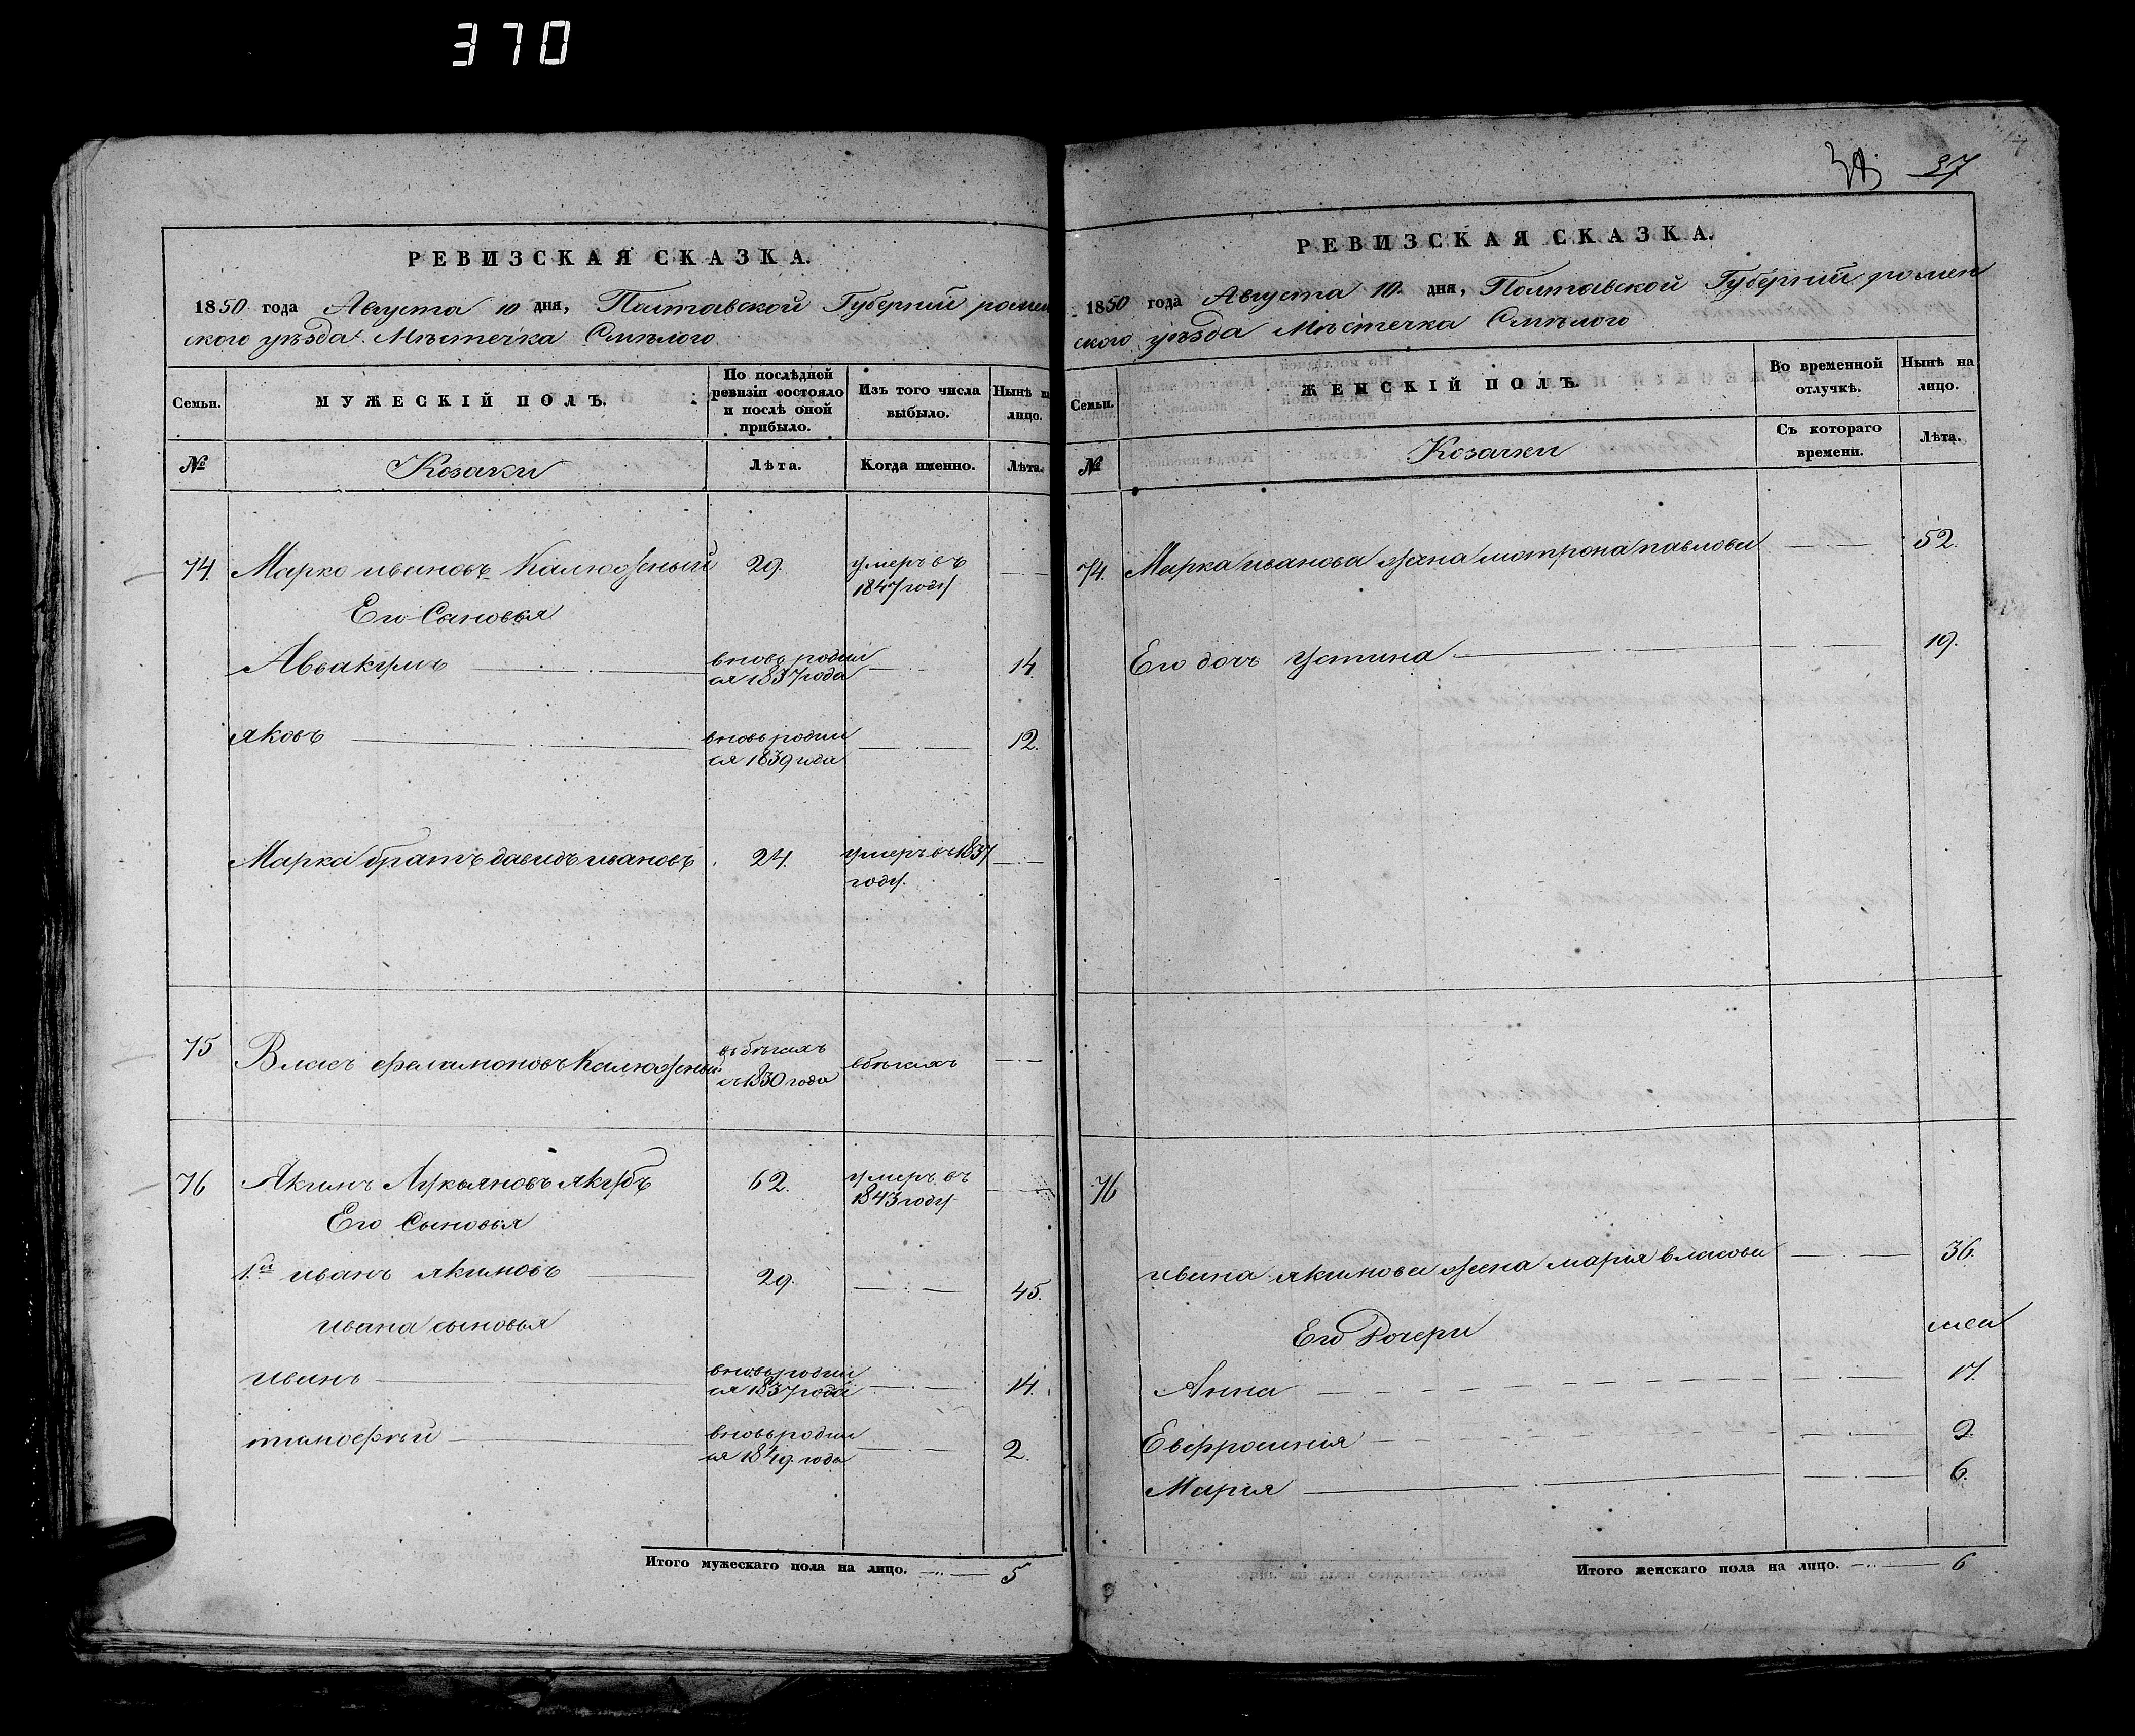 370
РЕВИЗСКАЯ СКАЗКА.
1850 года Августа 10 дня, Полтавской Губернии ромен
ского уѣзда Мѣстечка Смѣлого
Семьи.
МУЖЕСКІЙ ПОЛЪ.
По послѣдней ревизіи состояло и послѣ оной прибыло.
Изъ того числа выбыло.
Нынѣ на лицо.
№
Козаки
Лѣта.
Когда именно.
Лѣта.
74. Марко ивановъ Калюжный 29. умеръ въ
1847 году
Его Сыновья
Аввакумъ вновь родил
ся 1837 года 14
яковъ вновь родил
ся 1839 года 12.
Марка братъ давидъ ивановъ 24. умеръ въ 1837
году.
75 Власъ филимоновъ Калюжный въ бѣгахъ
съ 1830 года вбѣгахъ
76 Акимъ Лукьяновъ якубъ 62. умеръ въ
1843 году
Его Сыновья
1.й иванъ якимовъ 29. 45.
ивана сыновья
иванъ вновь родил
ся 1837 года 14.
тимофей вновь родил
ся 1849 года 2.
Итого мужескаго пола на лицо. 5
37
РЕВИЗСКАЯ СКАЗКА.
1850 года Августа 10. дня, Полтавской Губерніи ромен
ского уѣзда Мѣстечка Смѣлого
Семьи.
ЖЕНСКІЙ ПОЛЪ.
Во временной отлучкѣ.
Нынѣ на лицо.
№
Козачки
Съ котораго времени.
Лѣта.
74. Марка иванова жена мотрона павлова 52.
Его дочь Устина 19.
76
ивана якимова жена марія власова 36.
Его Дочери
Анна 17.
Евфросинія 9
Марія 6.
Итого женскаго пола на лицо. 6